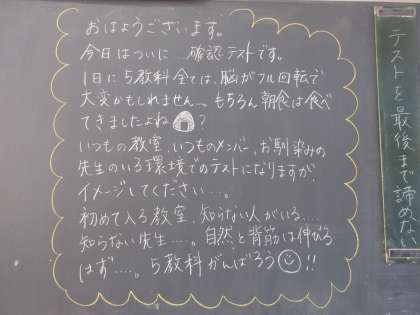 おはようございます。
今日はついに…確認テストです。
1日に5教科全ては、脳がフル回転で
大変かもしれません、もちろん朝食は食べ
てきましたよね?
いつもの教室、いつものメンバー、お馴染みの
先生のいる環境でのテストになりますが、
イメージしてください…。
初めて入る教室、知らない人がいる…
知らない先生…。自然と背筋は伸びる
はず…。5教科がんばろう!!
テストを最後まで諦めない